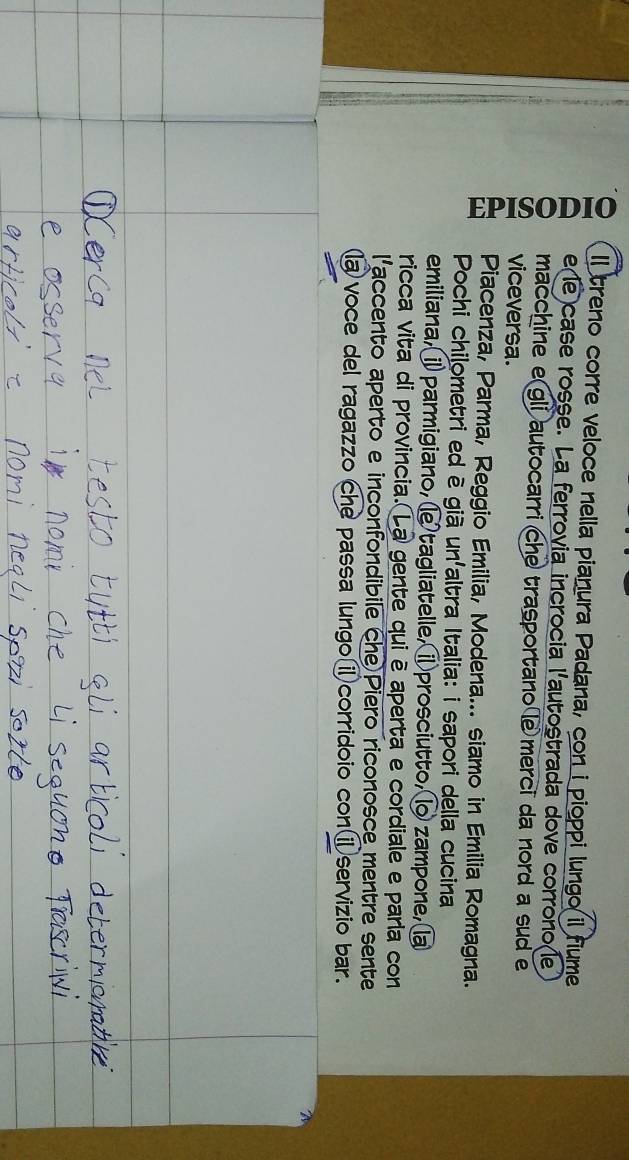 EPISODIO
Il treno corre veloce nella pianura Padana, con i pioppi lungo il fiume
e le case rosse. La ferrovia incrocia l'autostrada dove corrono le
macchine e gli autocarri che trasportano le merci da nord a sud e
viceversa.
Piacenza, Parma, Reggio Emilia, Modena... siamo in Emilia Romagna.
Pochi chilometri ed è già un'altra Italia: i sapori della cucina
emiliana, il parmigiano, le tagliatelle, il prosciutto, lo zampone, la
ricca vita di provincia. La gente qui è aperta e cordiale e parla con
l'accento aperto e inconfondibile che Piero riconosce mentre sente
la voce del ragazzo che passa lungo il corridoio con il servizio bar.
① Cerca nel testo tutti gli articoli determinative
e osserva i nomi che li seguono Trascrivi
articoli e nomi negli spazi sotto